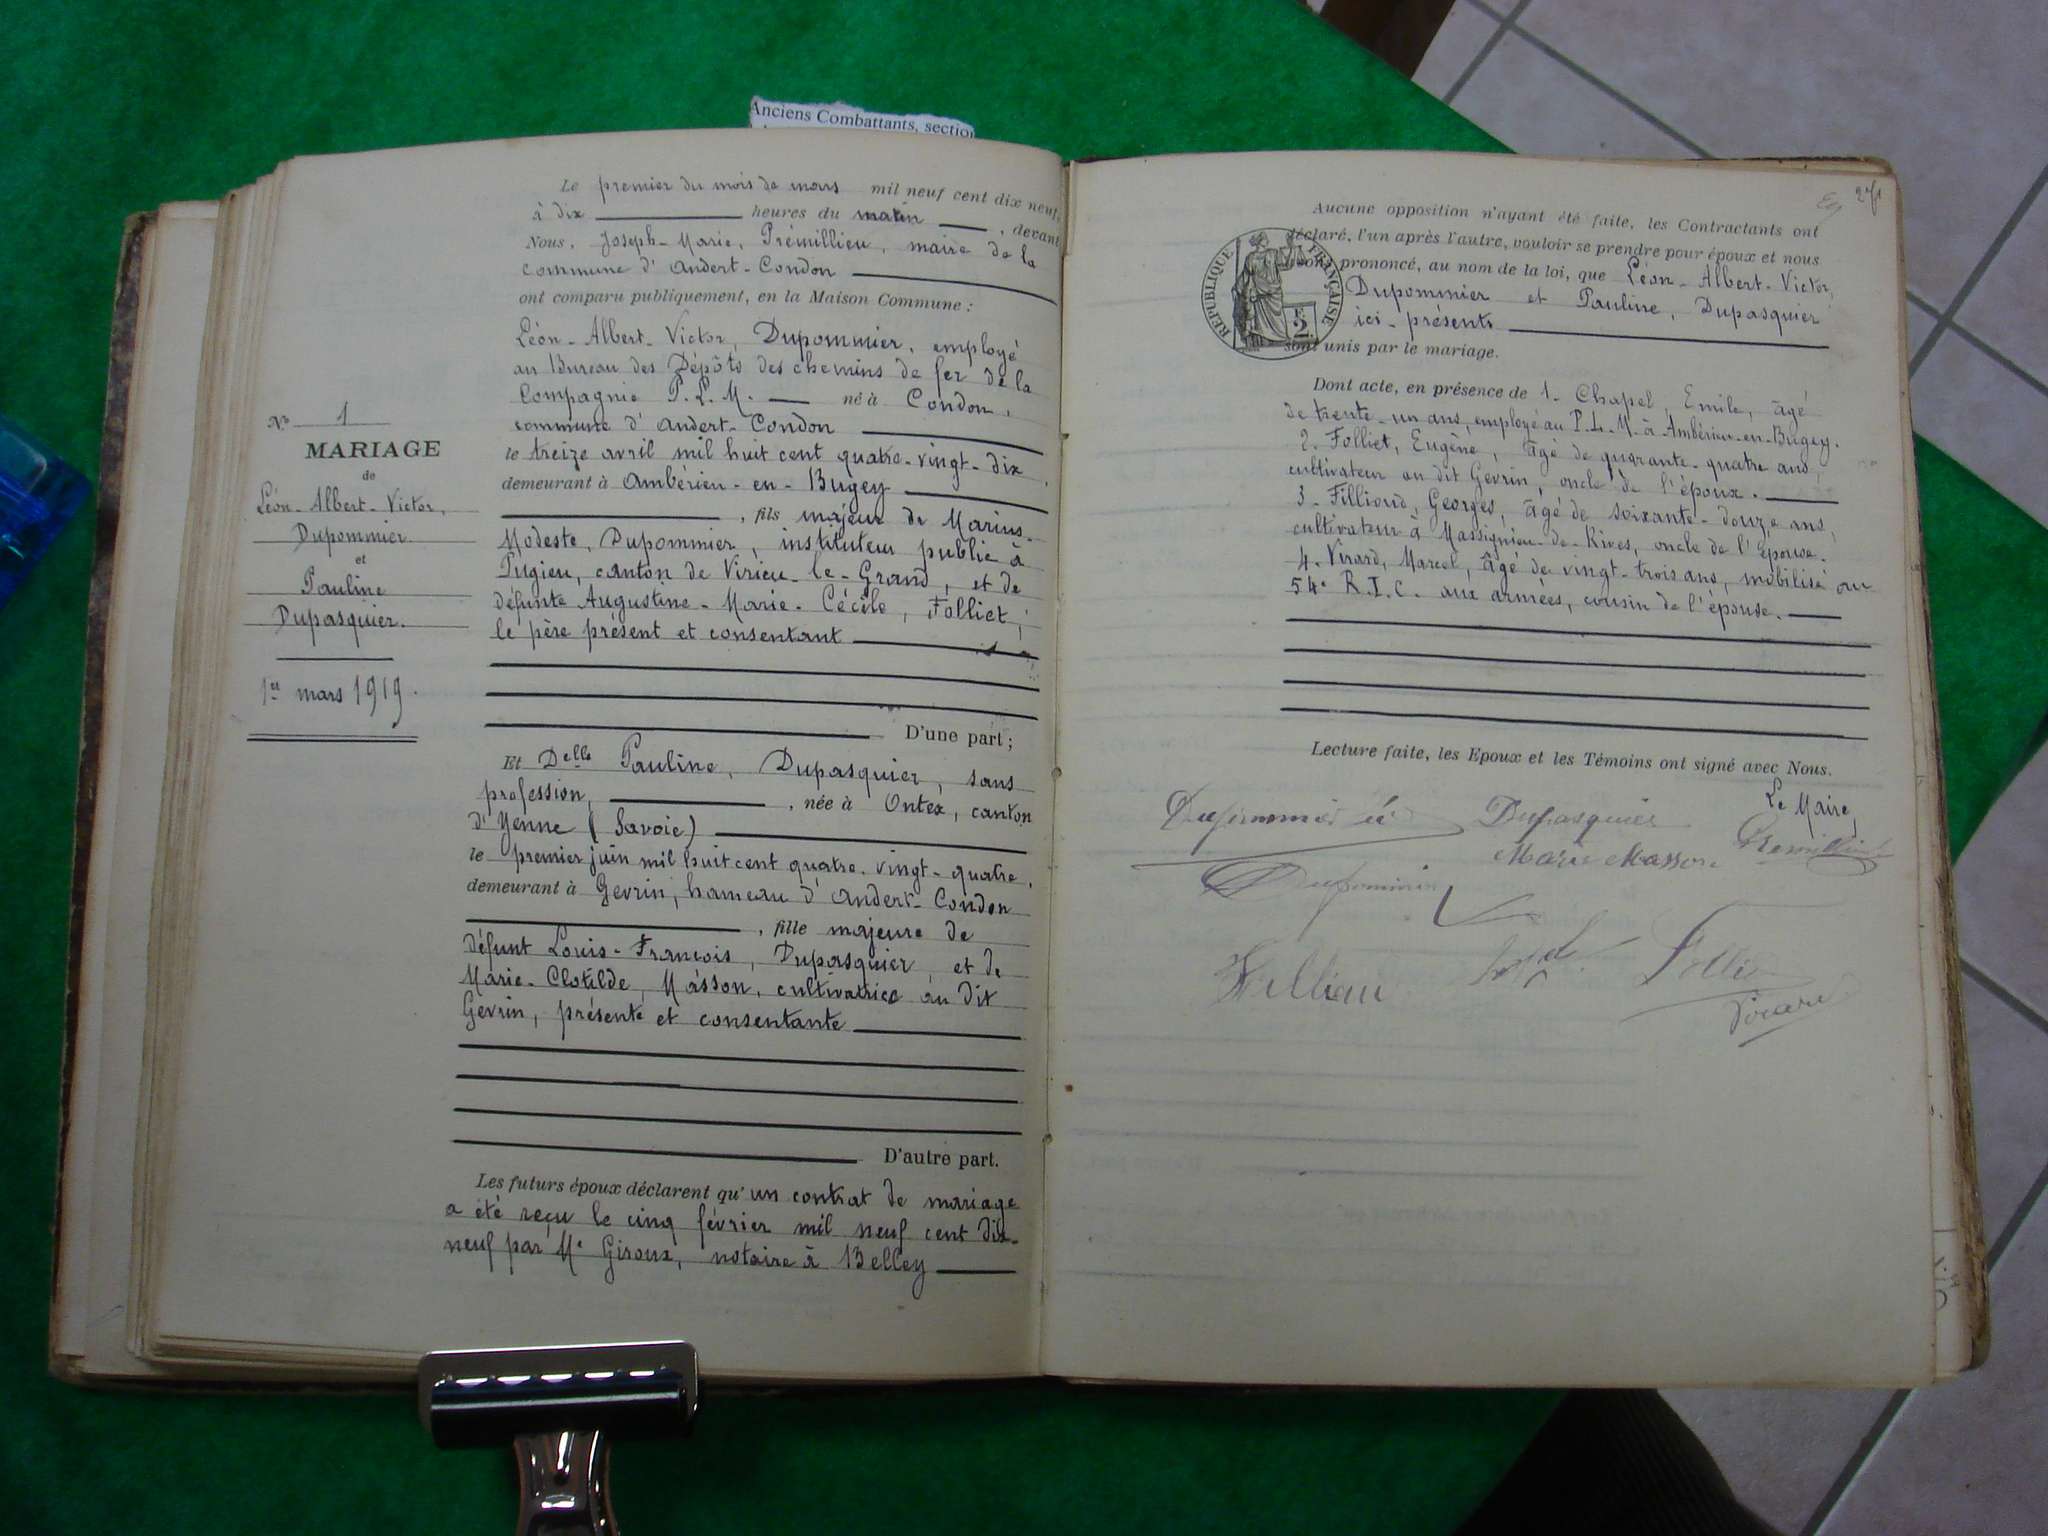 Anciens Combattants, section
Le premier du mois de mars mil neuf cent dix neuf,
à dix heures du matin, devant
Nous, Joseph-Marie, Prémillieu, maire de la
commune d'Andert-Condon
ont comparu publiquement, en la Maison Commune :
Léon-Albert-Victor, Dupommier, employé
au Bureau des Dépôts des chemins de fer de la
Compagnie P.L.M. né à Condon,
commune d'Andert-Condon
le treize avril mil huit cent quatre-vingt-dix,
demeurant à Ambérieu-en-Bugey
, fils majeur de Marius-
Modeste, Dupommier, instituteur public à
Pugieu, canton de Virieu-le-Grand, et de
défunte Augustine-Marie-Cécile, Folliet,
le père présent et consentant
D'une part ;
Et Delle Pauline, Dupasquier, sans
profession, , née à Ontex, canton
d'Yenne (Savoie)
le premier juin mil huit cent quatre-vingt-quatre,
demeurant à Gevrin, hameau d'Andert-Condon
, fille majeure de
défunt Louis-François, Dupasquier, et de
Marie-Clotilde, Masson, cultivatrice au dit
Gevrin, présente et consentante
D'autre part.
Les futurs époux déclarent qu'un contrat de mariage
a été reçu le cinq février mil neuf cent dix-
neuf par Me Giroux, notaire à Belley
No 1
MARIAGE
de
Léon-Albert-Victor,
Dupommier
et
Pauline
Dupasquier.
1er mars 1919.
271
Aucune opposition n'ayant été faite, les Contractants ont
déclaré, l'un après l'autre, vouloir se prendre pour époux et nous
avons prononcé, au nom de la loi, que Léon-Albert-Victor,
Dupommier et Pauline, Dupasquier
ici-présents
sont unis par le mariage.
REPUBLIQUE FRANÇAISE
Dont acte, en présence de 1. Chapel, Emile, âgé
de trente-un ans, employé au P.L.M. à Ambérieu-en-Bugey.
2. Folliet, Eugène, âgé de quarante-quatre ans,
cultivateur au dit Gevrin, oncle de l'époux.
3. Filliond, Georges, âgé de soixante-douze ans,
cultivateur à Massignieu-de-Rives, oncle de l'épouse.
4. Virard, Marcel, âgé de vingt-trois ans, mobilisé au
54e R.I.C. aux armées, cousin de l'épouse.
Lecture faite, les Epoux et les Témoins ont signé avec Nous.
Le Maire,
Dupommier Dupasquier
Marie Masson
Dupommier